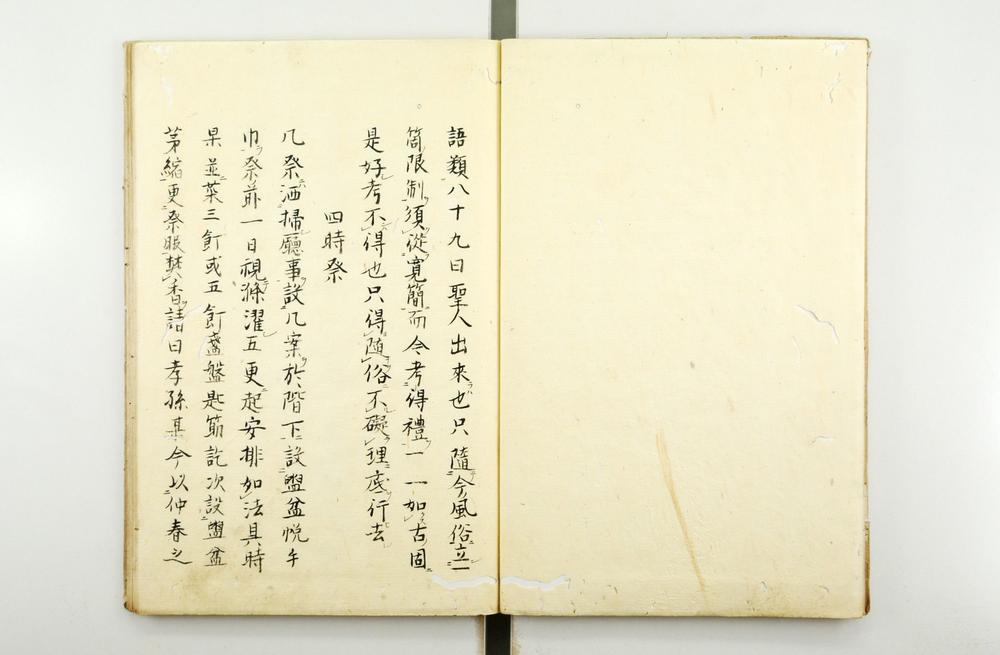 語類八十九曰聖人出來也只隨今風俗立一
箇限制須從寛簡而今考得禮一一如古固
是好考不得也只得隨俗不礙理底行去
四時祭
凡祭洒掃廳事設几案於階下設盥盆帨手
巾祭前一日視滌濯五更起安排如法具時
果並菜三飣或五飣盞盤匙筯訖次設盥盆
茅縮更祭服焚香請曰孝孫某今以仲春之